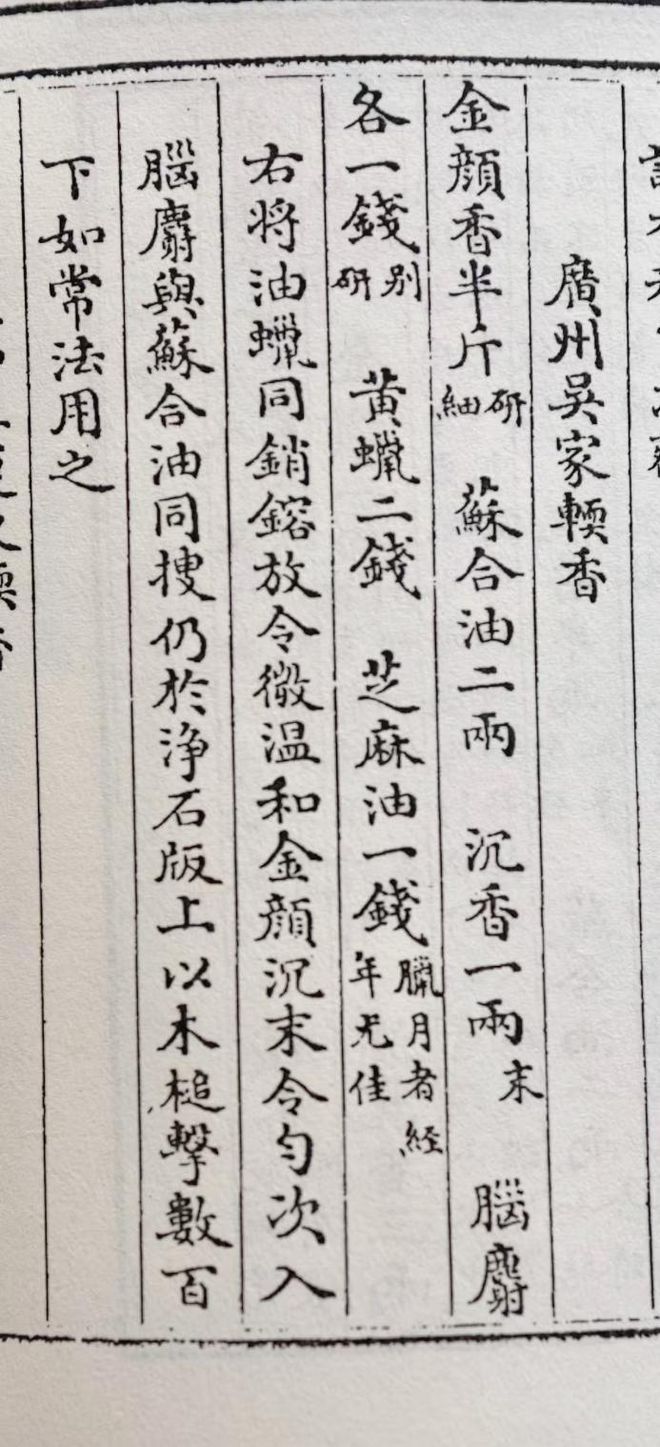 廣州吳家輭香
金顔香半斤研細 蘇合油二兩 沉香一兩末 腦麝
各一錢别研 黄蠟二錢 芝麻油一錢臘月者經年尤佳
右将油蠟同銷鎔放令微温和金顔沉末令匀次入
腦麝與蘇合油同搜仍於浄石版上以木槌擊數百
下如常法用之